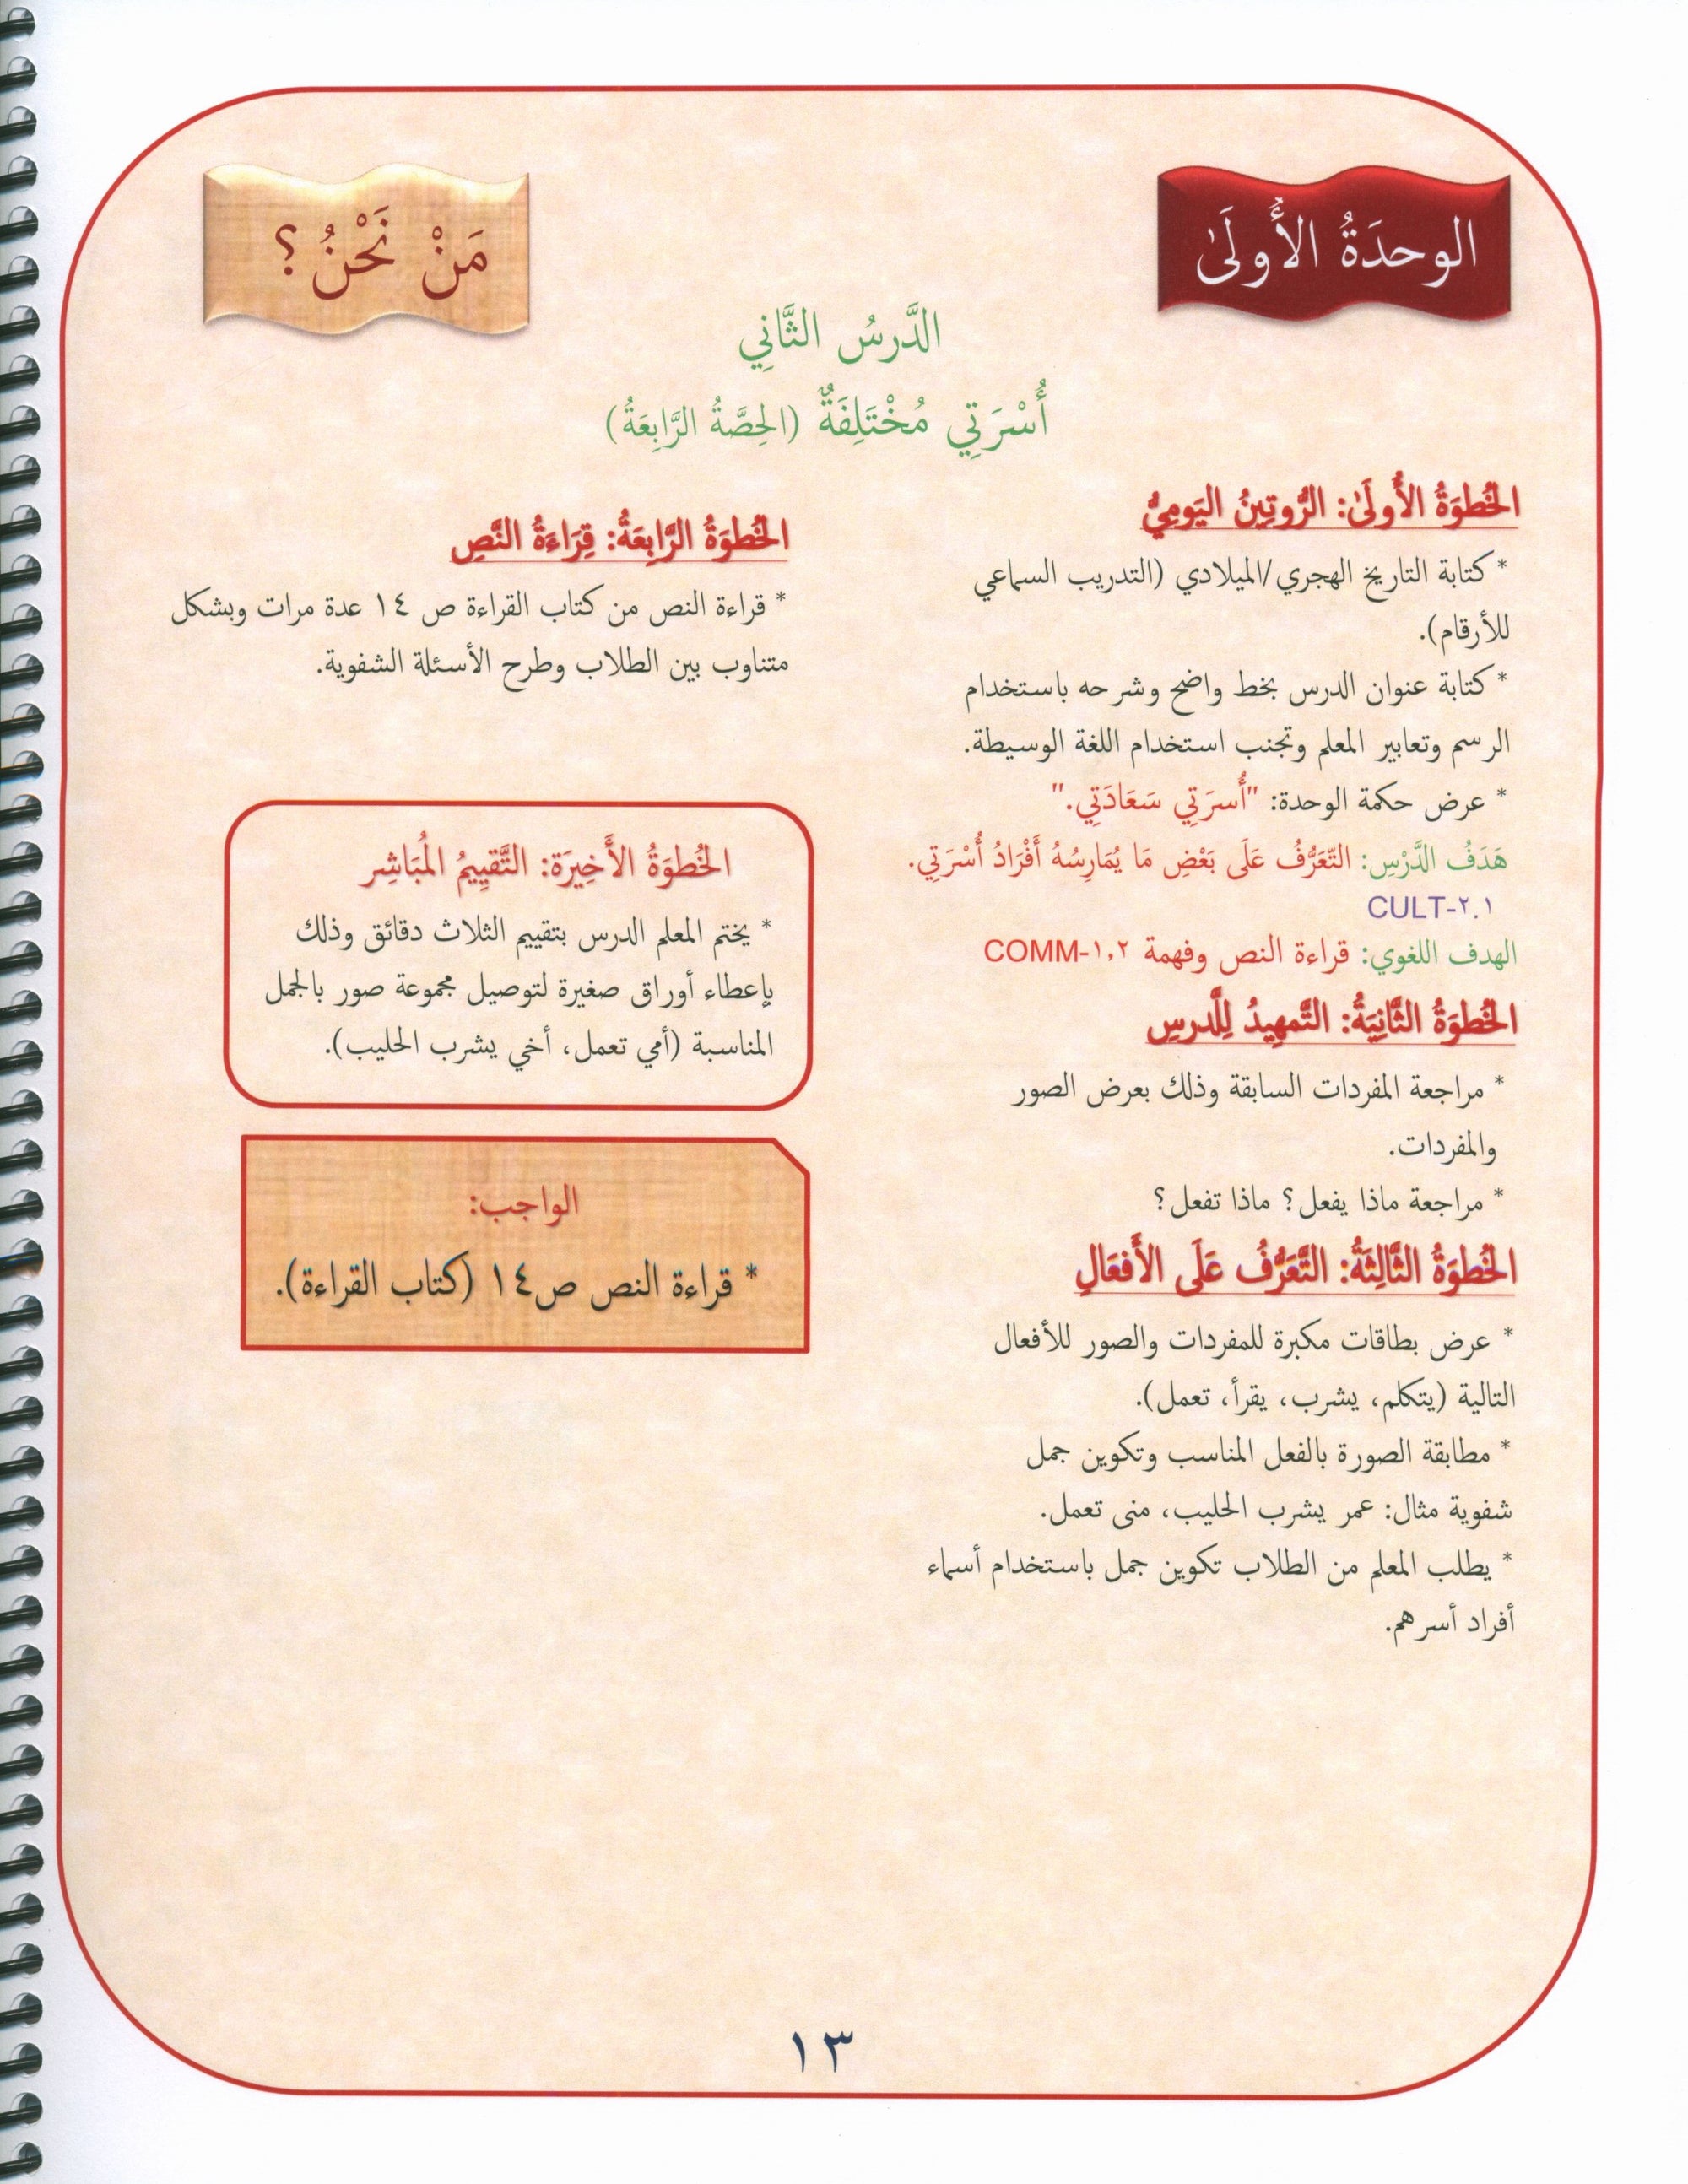 الوحدَةُ الأُولَىٰ
مَنْ نَحْنُ؟
الدَّرسُ الثَّانِي
أُسْرَتِي مُخْتَلِفَةٌ (الحِصَّةُ الرَّابِعَةُ)
الخُطوَةُ الأُولَىٰ: الرُّوتِينُ اليَومِيُّ
* كتابة التاريخ الهجري/الميلادي (التدريب السماعي
للأرقام).
* كتابة عنوان الدرس بخط واضح وشرحه باستخدام
الرسم وتعابير المعلم وتجنب استخدام اللغة الوسيطة.
* عرض حكمة الوحدة: "أُسرَتِي سَعَادَتِي."
هَدَفُ الدَّرْسِ: التّعَرُّفُ عَلَى بَعْضِ مَا يُمَارِسُهُ أَفْرَادُ أُسْرَتِي.
CULT-٢.١
الهدف اللغوي: قراءة النص وفهمة COMM-١,٢
الخُطوَةُ الثَّانِيَةُ: التَّمهِيدُ لِلَّدرسِ
* مراجعة المفردات السابقة وذلك بعرض الصور
والمفردات.
* مراجعة ماذا يفعل؟ ماذا تفعل؟
الخُطوَةُ الثَّالِثَةُ: التَّعَرُّفُ عَلَى الأَفعَالِ
* عرض بطاقات مكبرة للمفردات والصور للأفعال
التالية (يتكلم، يشرب، يقرأ، تعمل).
* مطابقة الصورة بالفعل المناسب وتكوين جمل
شفوية مثال: عمر يشرب الحليب، منى تعمل.
* يطلب المعلم من الطلاب تكوين جمل باستخدام أسماء
أفراد أسرهم.
الخُطوَةُ الرَّابِعَةُ: قِرَاءَةُ النَّصِ
* قراءة النص من كتاب القراءة ص ١٤ عدة مرات وبشكل
متناوب بين الطلاب وطرح الأسئلة الشفوية.
الخُطوَةُ الأَخِيرَة: التَّقيِيمُ المُبَاشِر
* يختم المعلم الدرس بتقييم الثلاث دقائق وذلك
بإعطاء أوراق صغيرة لتوصيل مجموعة صور بالجمل
المناسبة (أمي تعمل، أخي يشرب الحليب).
الواجب:
* قراءة النص ص١٤ (كتاب القراءة).
١٣